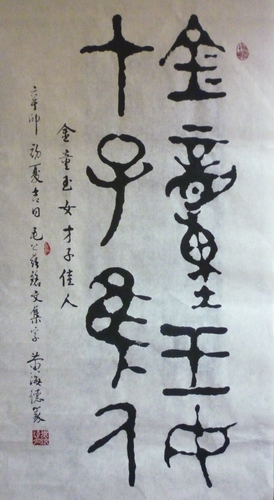 金童玉女
才子佳人
金童玉女才子佳人
初夏吉日毛公鼎銘文集字黄海儒篆